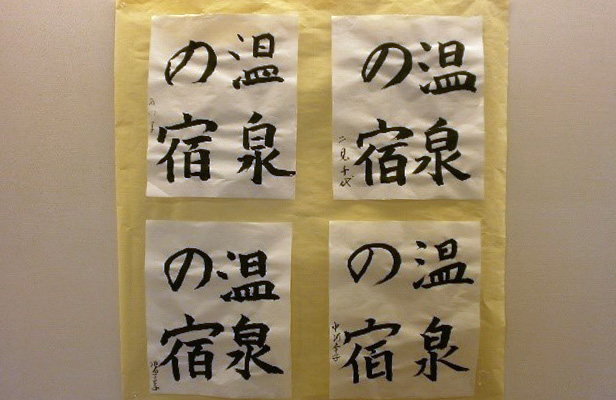 温泉
の宿
二見千代
温泉
の宿
温泉
の宿
温泉
の宿